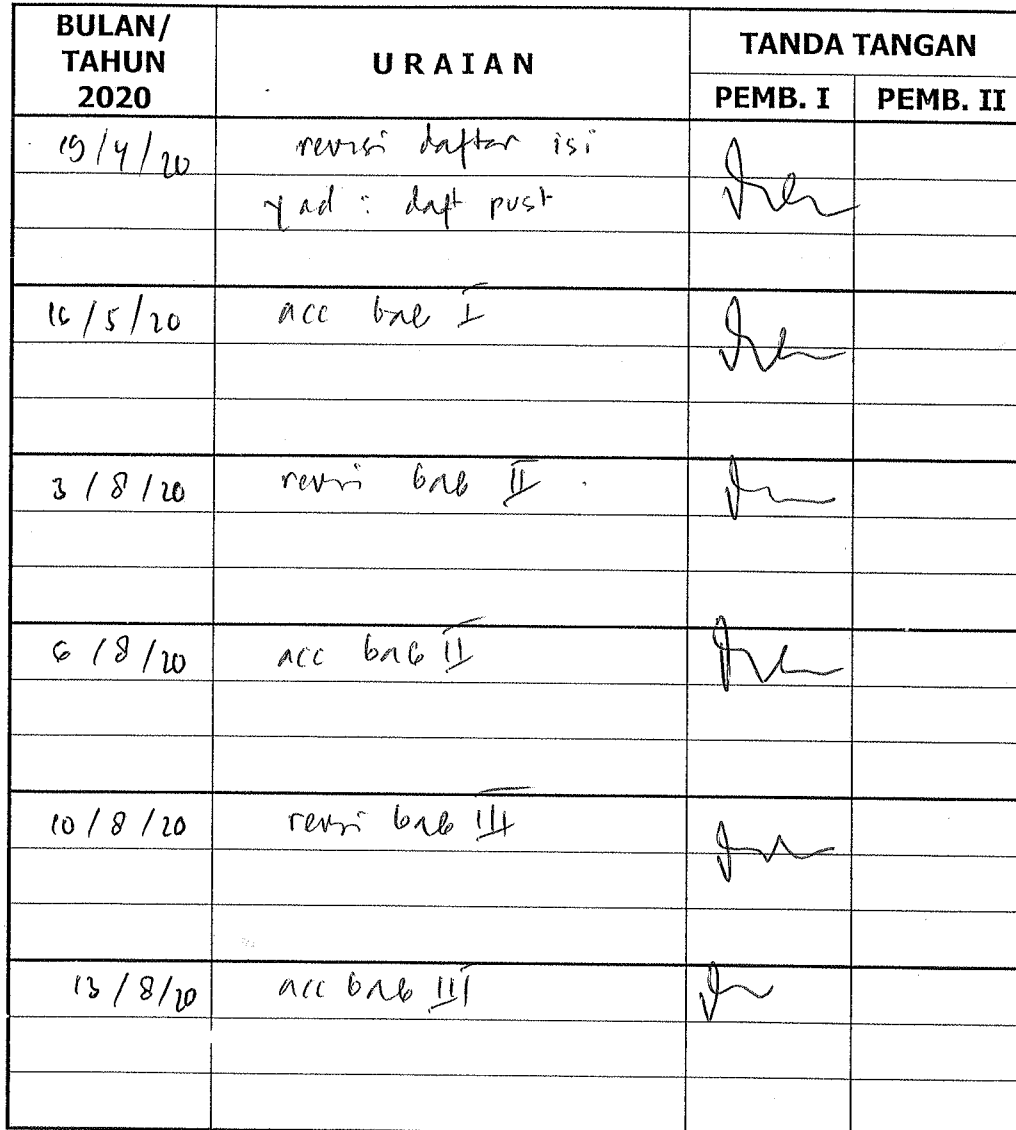 BULAN/
TAHUN
2020
URAIAN
TANDA TANGAN
PEMB. I
PEMB. II
19/4/20 revisi daftar isi
yad : daft pust
16/5/20 acc bab I
3/8/20 revisi bab II
6/8/20 acc bab II
10/8/20 revisi bab III
13/8/20 acc bab III